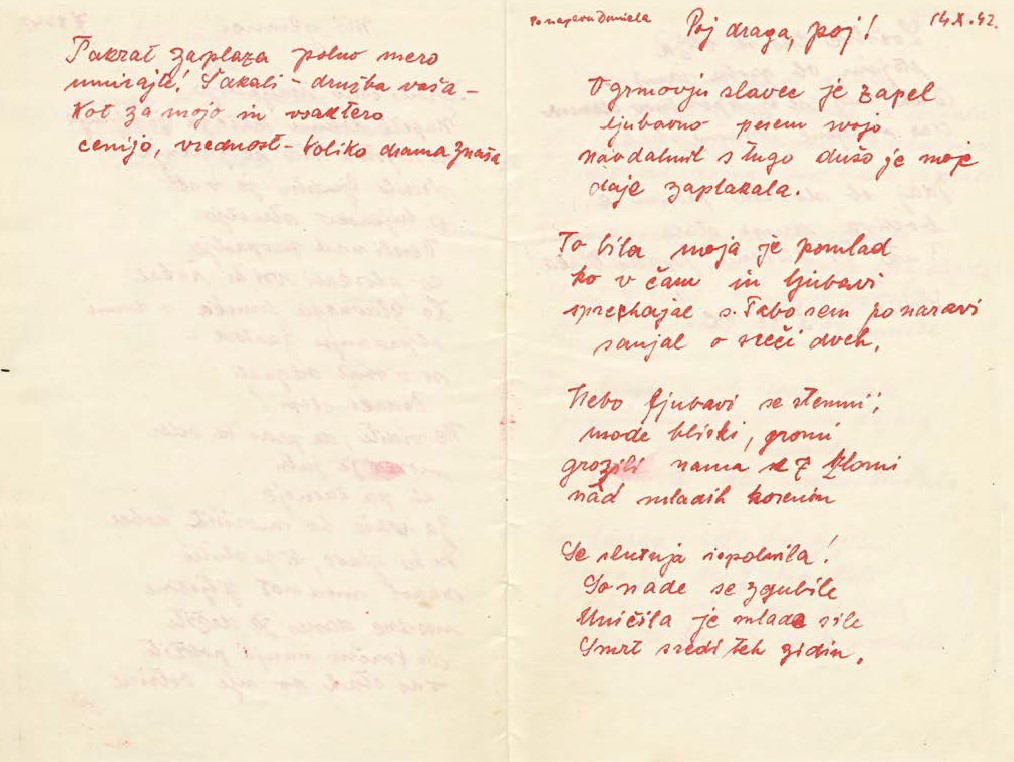 Takrat zaplaza polno mero
umirajte! Šakali – družba vaša –
Kot za mojo in vsaktero
cenijo, vrednost – toliko drama znaša
Po napevu Daniela
Poj draga, poj!
14.X.42.
V grmovju slavec je zapel
ljubavno pesem svojo
navdahnil s tugo dušo je mojo
da je zaplakala.
To bila moja je pomlad
ko v čam in ljubavi
sprehajal s Tabo sem po naravi
sanjal o sreči dveh.
Nebo ljubavi se stemni;
mode bliski, gromi
grozili nama
nad mladih korenin
Se slutnja izpolnila!
So nade se zgubile
Uničila je mlade sile
Smrt sredi teh zidin.